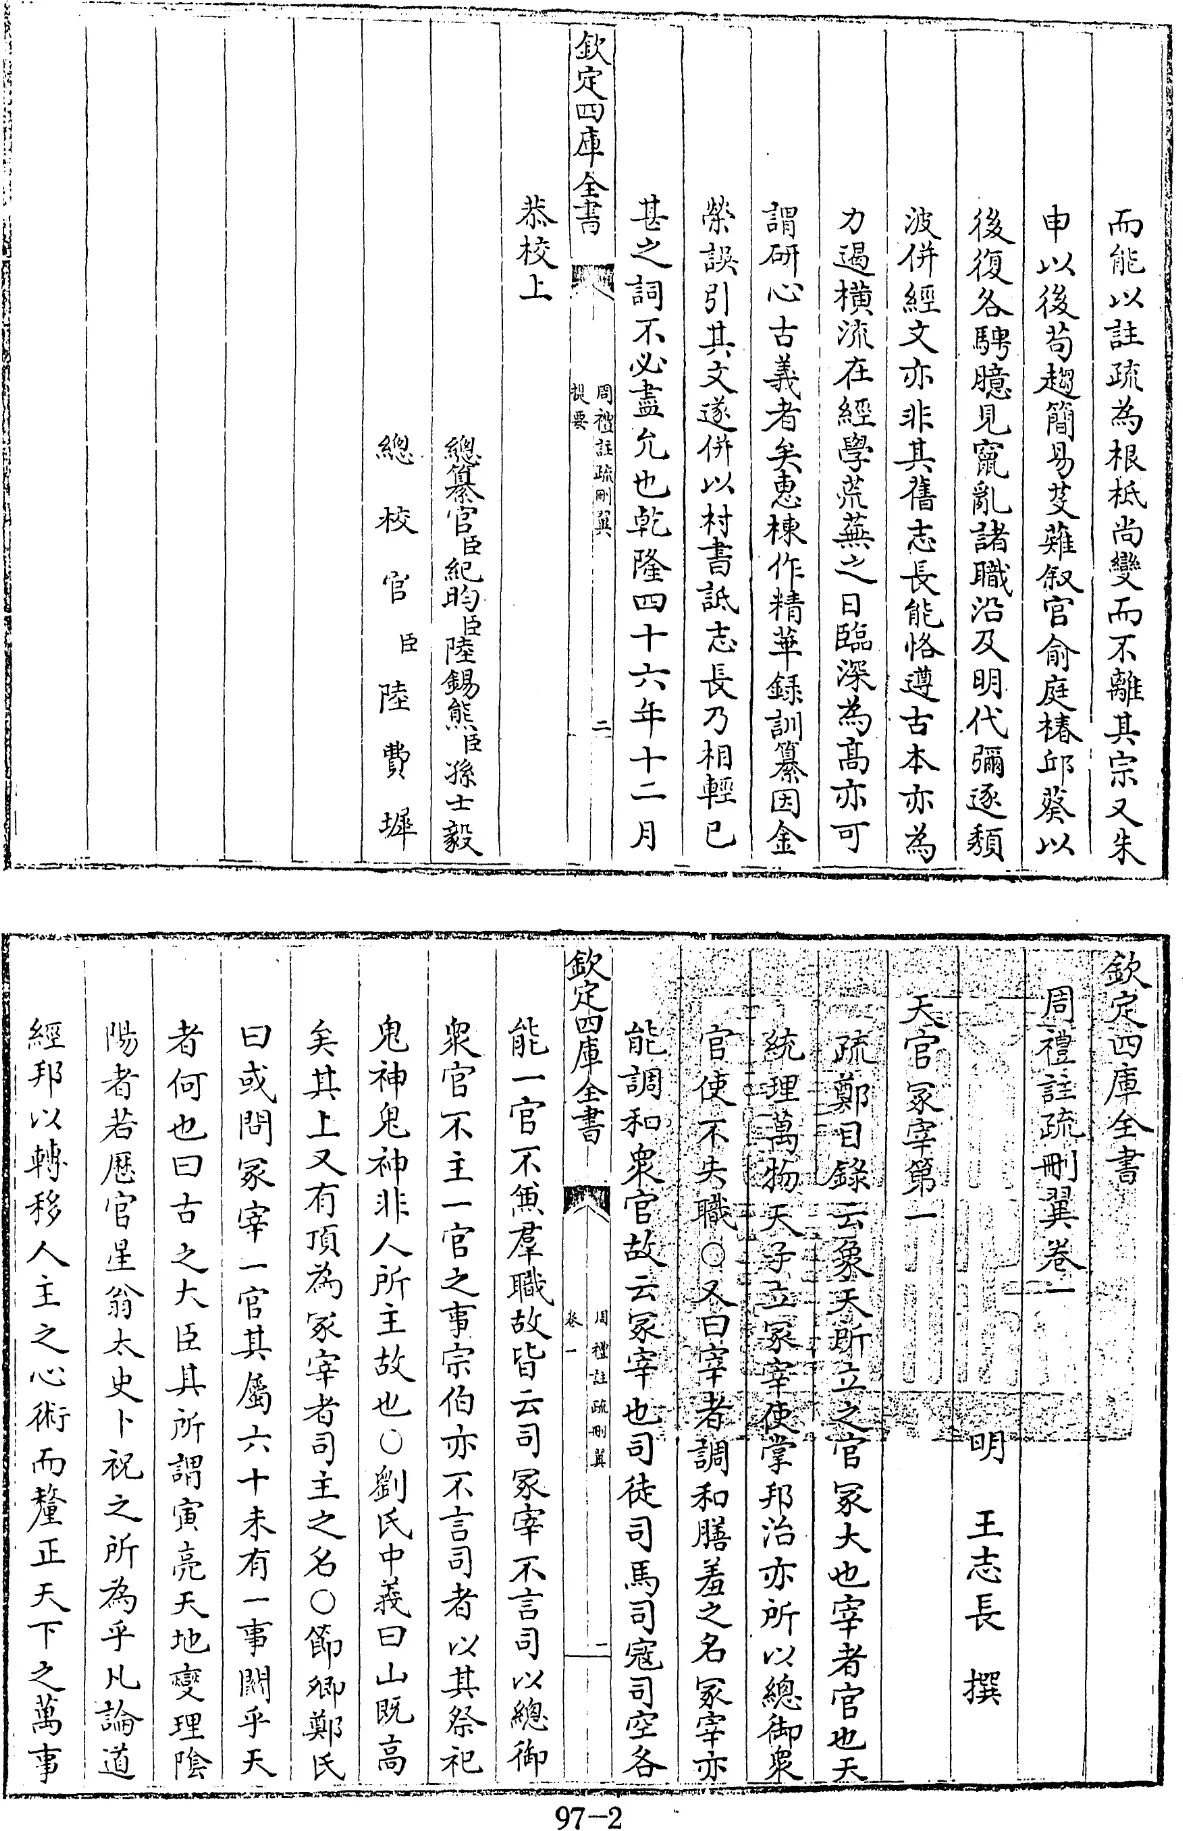 而能以註疏為根柢尚變而不離其宗又朱
申以後苟趨簡易芟薙叙官俞庭椿邱葵以
後復各騁臆見竄亂諸職沿及明代彌逐頽
波併經文亦非其舊志長能恪遵古本亦為
力遏橫流在經學荒蕪之日臨深為高亦可
謂研心古義者矣惠棟作精華錄訓纂因金
榮誤引其文遂併以村書詆志長乃相輕已
甚之詞不必盡允也乾隆四十六年十二月
欽定四庫全書
周禮註疏刪翼
提要
二
恭校上
總纂官臣紀昀臣陸錫熊臣孫士毅
總校官臣陸費墀
欽定四庫全書
周禮註疏刪翼卷一
明 王志長 撰
天官冢宰第一
疏鄭目錄云象天所立之官冢大也宰者官也天
統理萬物天子立冢宰使掌邦治亦所以總御衆
官使不失職○又曰宰者調和膳羞之名冢宰亦
能調和衆官故云冢宰也司徒司馬司寇司空各
欽定四庫全書
周禮註疏刪翼
卷一
一
能一官不兼羣職故皆云司冢宰不言司以總御
衆官不主一官之事宗伯亦不言司者以其祭祀
鬼神鬼神非人所主故也○劉氏中義曰山既高
矣其上又有頂為冢宰者司主之名○節卿鄭氏
曰或問冢宰一官其屬六十未有一事闗乎天
者何也曰古之大臣其所謂寅亮天地燮理陰
陽者若厯官星翁太史卜祝之所為乎凡論道
經邦以轉移人主之心術而釐正天下之萬事
97-2